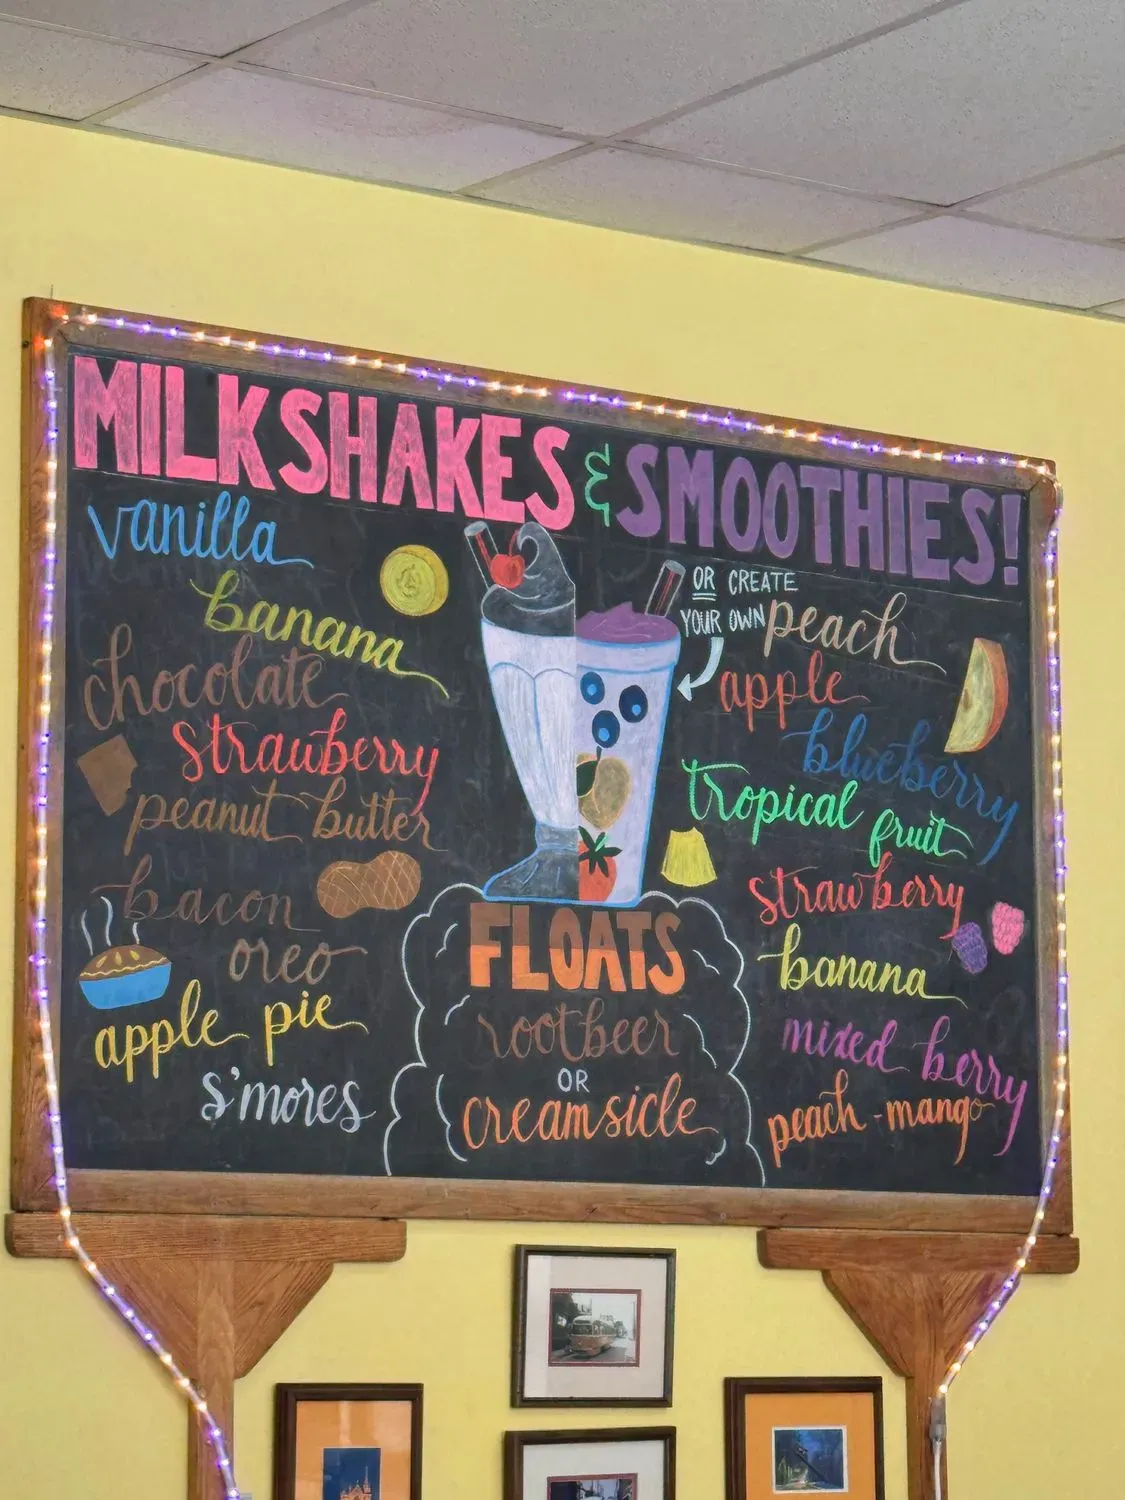 MILKSHAKES & SMOOTHIES!
vanilla
banana
chocolate
strawberry
peanut butter
bacon
oreo
apple pie
s'mores
FLOATS
rootbeer
OR
creamsicle
OR CREATE
YOUR OWN
peach
apple
blueberry
tropical fruit
strawberry
banana
mixed berry
peach-mango